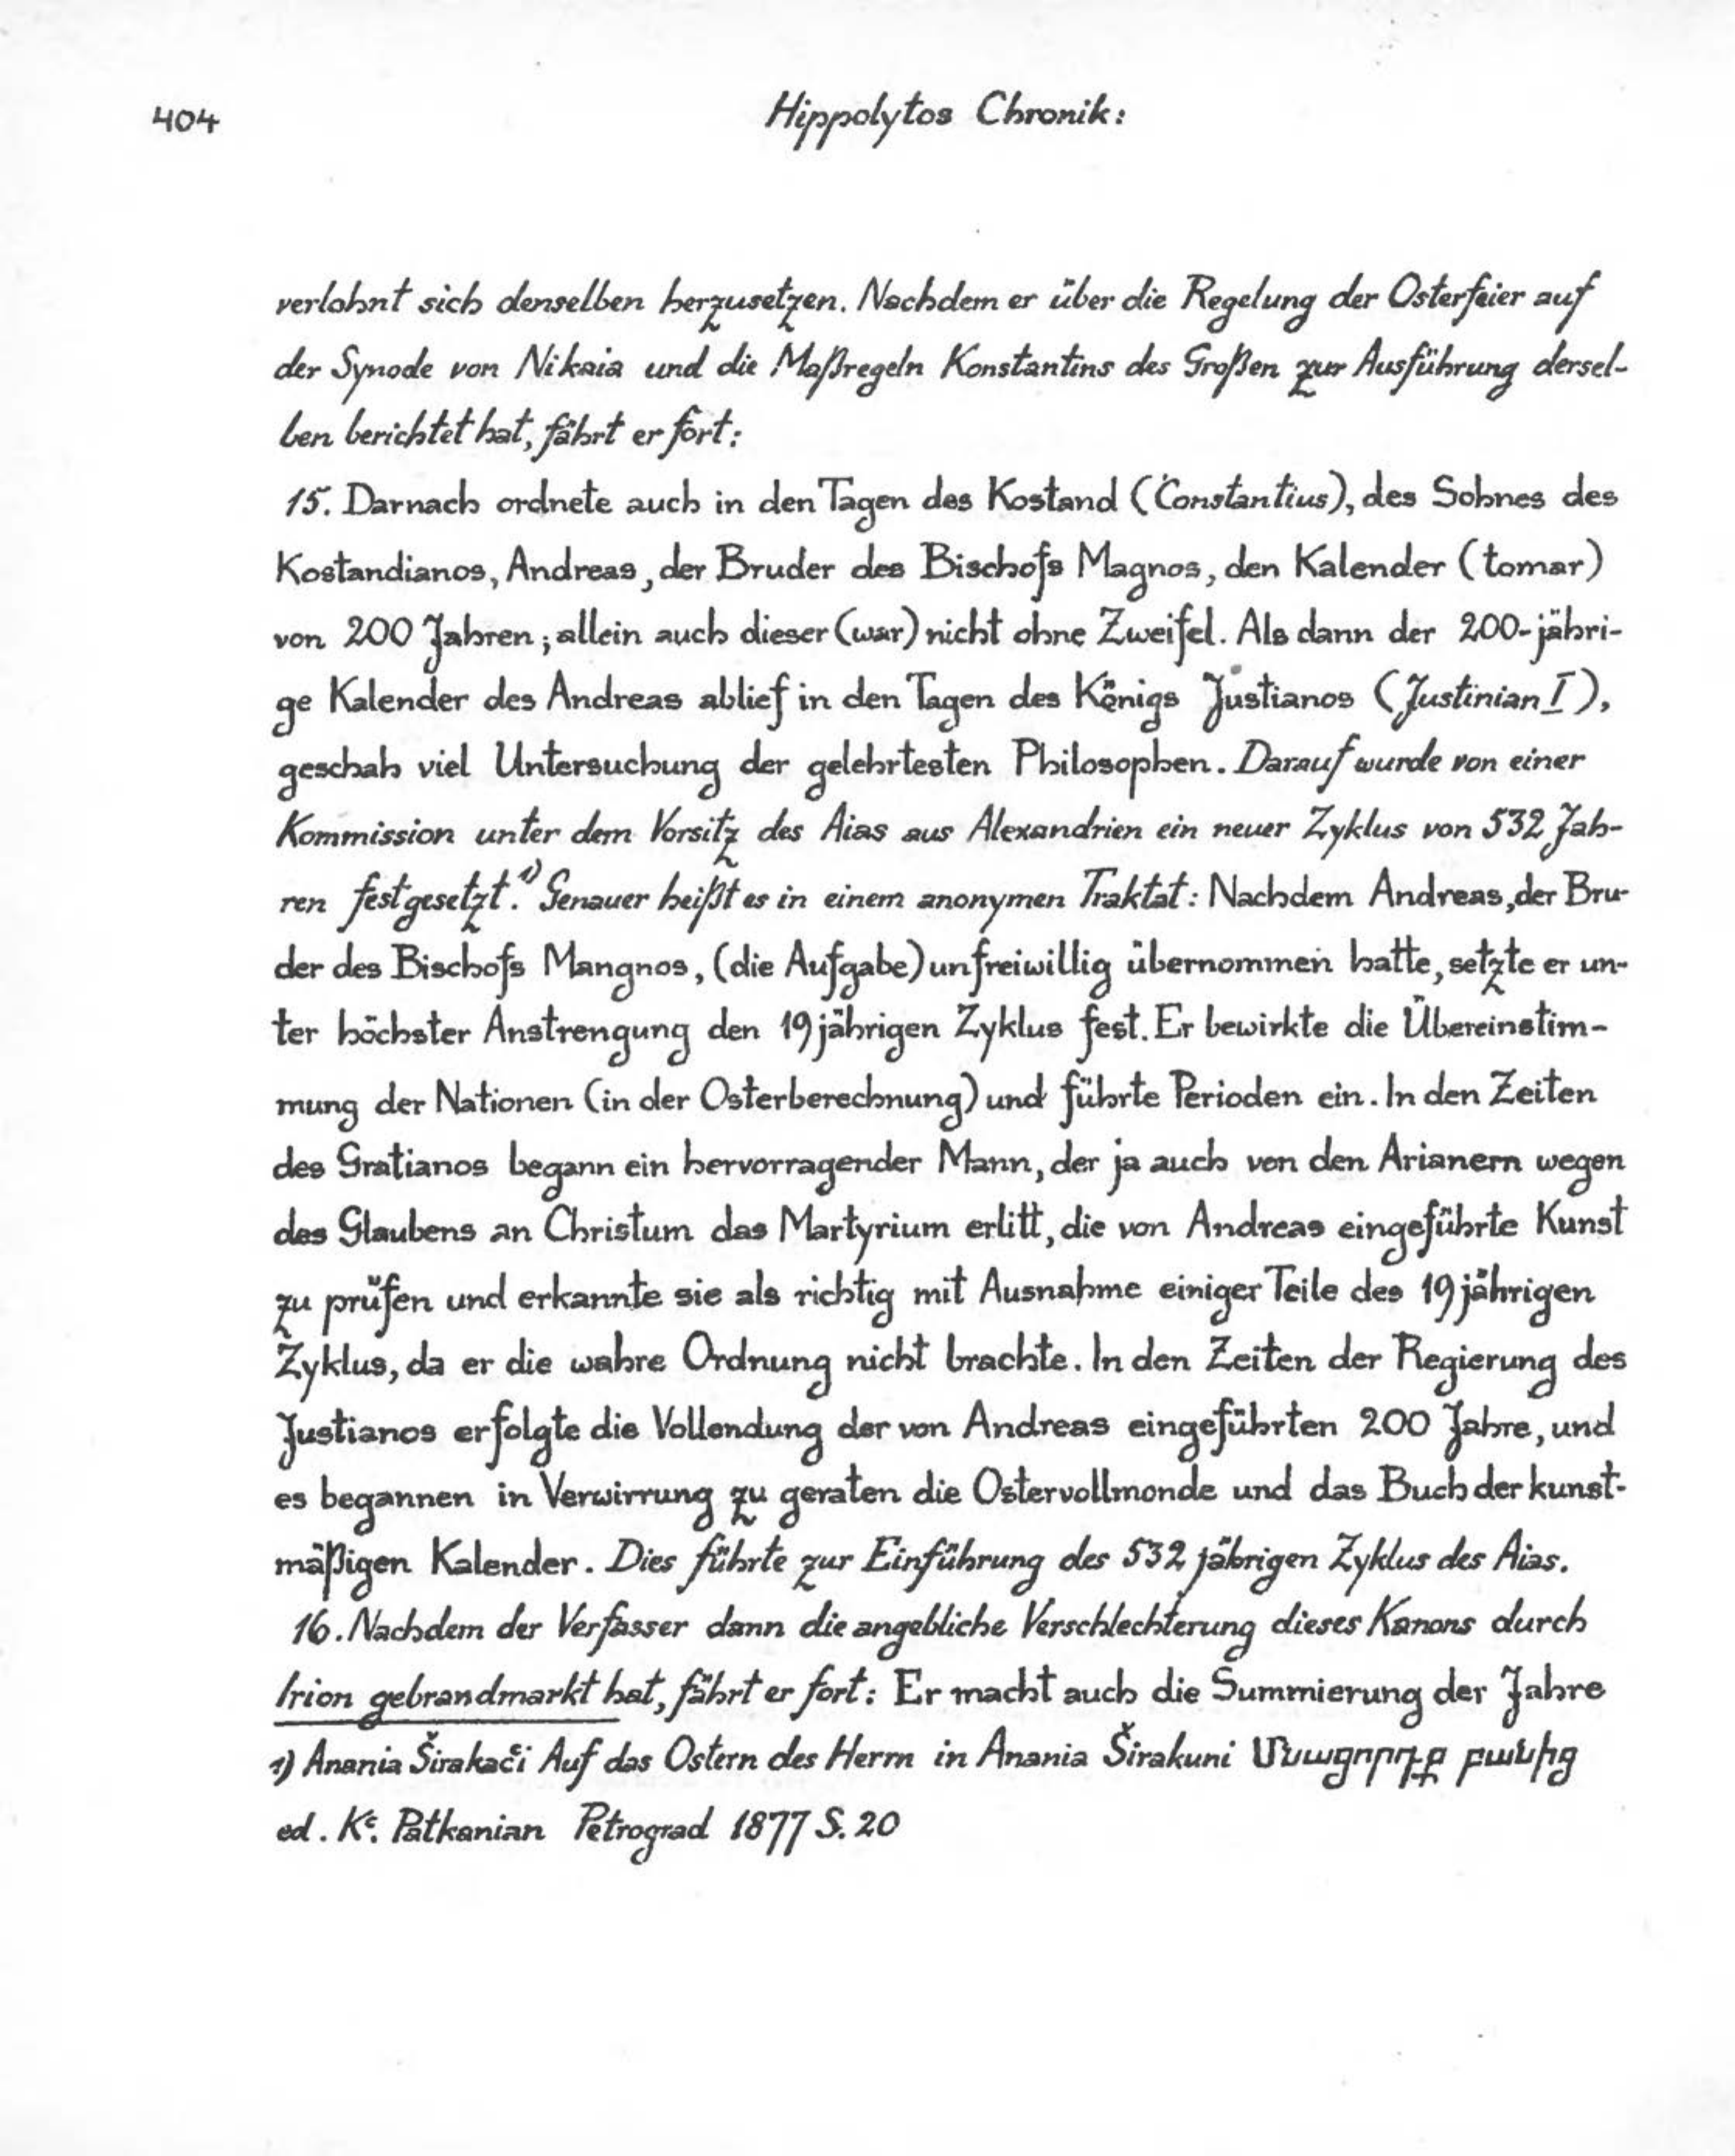 404
Hippolytos Chronik:
verlohnt sich denselben herzusetzen. Nachdem er über die Regelung der Osterfeier auf
der Synode von Nikaia und die Maßregeln Konstantins des Großen zur Ausführung dersel-
ben berichtet hat, fährt er fort:
15. Darnach ordnete auch in den Tagen des Kostand (Constantius), des Sohnes des
Kostandianos, Andreas, der Bruder des Bischofs Magnos, den Kalender (tomar)
von 200 Jahren; allein auch dieser (war) nicht ohne Zweifel. Als dann der 200-jähri-
ge Kalender des Andreas ablief in den Tagen des Königs Justianos (Justinian I),
geschah viel Untersuchung der gelehrtesten Philosophen. Darauf wurde von einer
Kommission unter dem Vorsitz des Aias aus Alexandrien ein neuer Zyklus von 532 Jah-
ren festgesetzt.¹⁾ Genauer heißt es in einem anonymen Traktat: Nachdem Andreas, der Bru-
der des Bischofs Mangnos, (die Aufgabe) unfreiwillig übernommen hatte, setzte er un-
ter höchster Anstrengung den 19jährigen Zyklus fest. Er bewirkte die Übereinstim-
mung der Nationen (in der Osterberechnung) und führte Perioden ein. In den Zeiten
des Gratianos begann ein hervorragender Mann, der ja auch von den Arianern wegen
des Glaubens an Christum das Martyrium erlitt, die von Andreas eingeführte Kunst
zu prüfen und erkannte sie als richtig mit Ausnahme einiger Teile des 19jährigen
Zyklus, da er die wahre Ordnung nicht brachte. In den Zeiten der Regierung des
Justianos erfolgte die Vollendung der von Andreas eingeführten 200 Jahre, und
es begannen in Verwirrung zu geraten die Ostervollmonde und das Buch der kunst-
mäßigen Kalender. Dies führte zur Einführung des 532jährigen Zyklus des Aias.
16. Nachdem der Verfasser dann die angebliche Verschlechterung dieses Kanons durch
Irion gebrandmarkt hat, fährt er fort: Er macht auch die Summierung der Jahre
1) Anania Širakac̔i Auf das Ostern des Herrn in Anania Širakuni Մնացորդք բանից
ed. K̔. Patkanian Petrograd 1877 S. 20